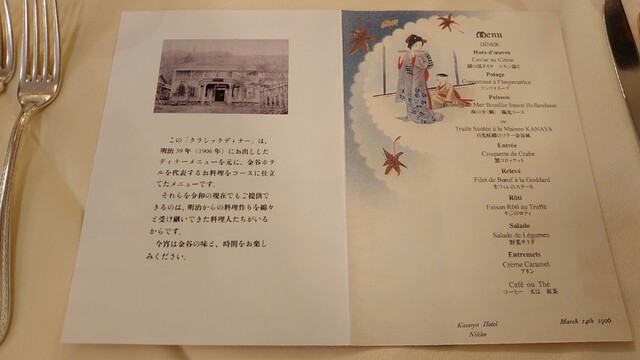 この「クラシックディナー」は、
明治39年(1906年)にお出しした
ディナーメニューを元に、金谷ホテ
ルを代表するお料理をコースに仕立
てたメニューです。
それらを令和の現在でもご提供で
きるのは、明治からの料理作りを綿々
と受け継いできた料理人たちがいる
からです。
今宵は金谷の味と、時間をお楽し
みください。
Menu
DÎNER
Hors-d'œuvre
Caviar au Citron
Potage
Consommé à l'Imperatrice
コンソメスープ
Poisson
Mer Bouillie Sauce Hollandaise
ou
Truite Sautée à la Maison KANAYA
日光虹鱒のソテー金谷風
Entrée
Croquette de Crabe
蟹コロッケット
Relevé
Filet de Bœuf à la Goddard
牛フィレのステーキ
Rôti
Faisan Rôti au Truffe
キジのロティ
Salade
Salade de Légumes
野菜サラダ
Entremets
Crème Caramel
プリン
Café ou Thé
コーヒー 又は 紅茶
Kanaya Hotel
Nikko
March 14th 1906